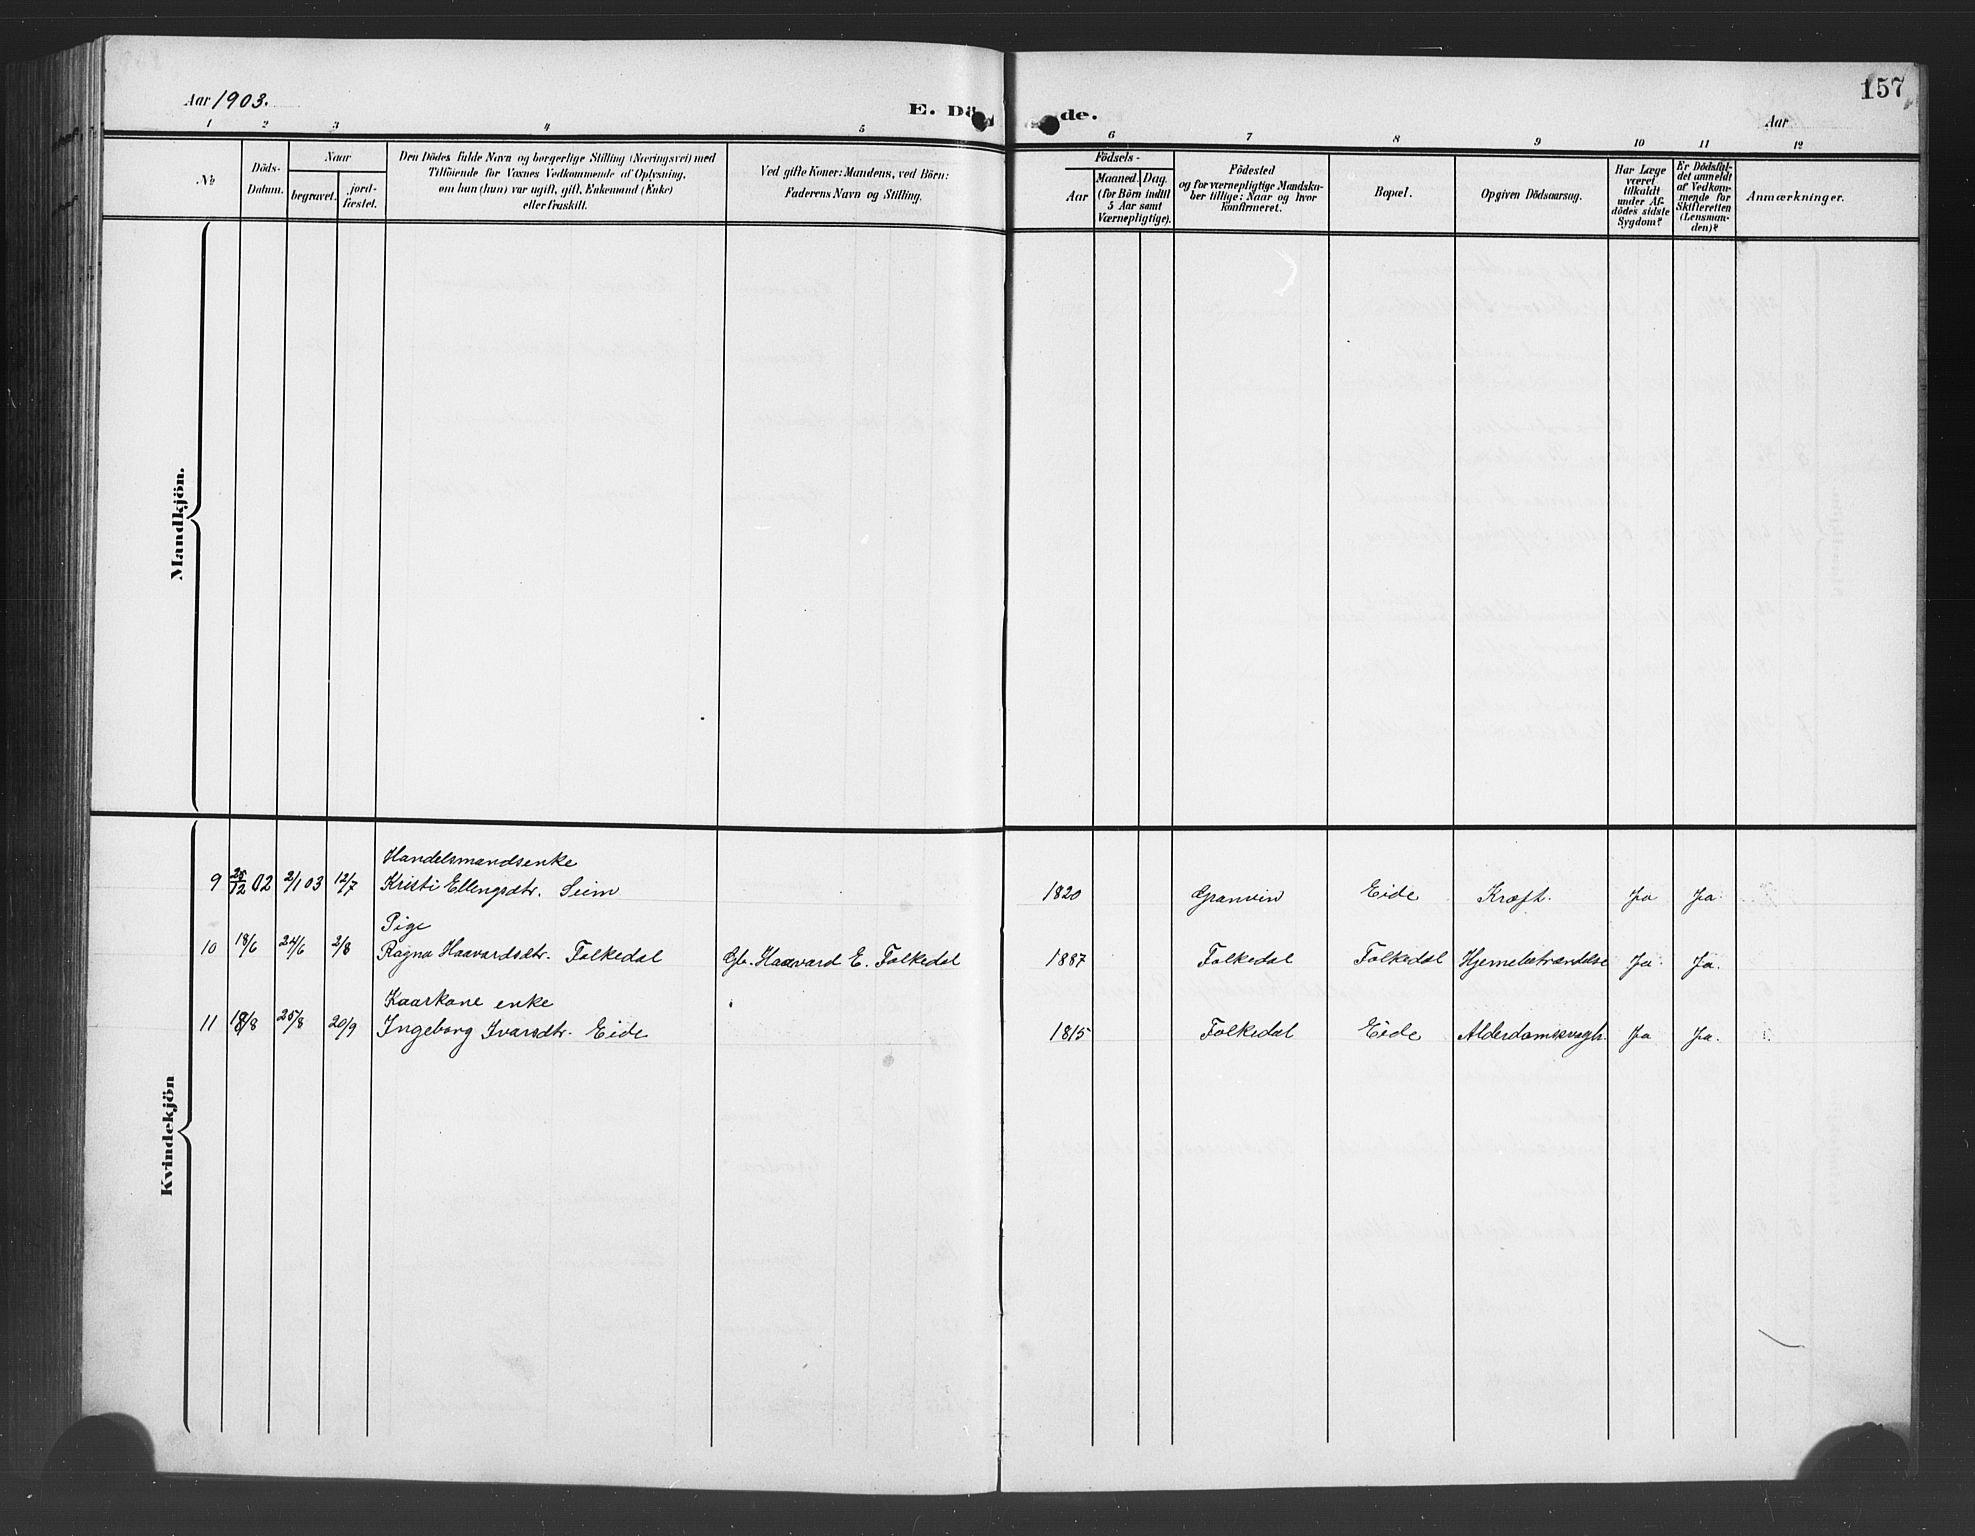 157
Aar 1903.
E. Dö de.
Aar
1 2 3 4 5 6 7 8 9 10 11 12
No
Döds-
Datum.
Naar
begravet.
jord-
fæstet.
Den Dödes fulde Navn og borgerlige Stilling (Næringsvei) med
Tilföiende for Voxnes Vedkommende af Oplysning,
om han (hun) var ugift, gift, Enkemand (Enke)
eller fraskilt.
Ved gifte Koner: Mandens, ved Börn:
Faderens Navn og Stilling.
Födsels-
Aar
Maaned. Dag.
(for Börn indtil
5 Aar samt
Værnepligtige).
Födested
og for værnepligtige Mandska-
ber tillige: Naar og hvor
konfirmeret.
Bopæl.
Opgiven Dödsaarsag.
Har Læge
været
tilkaldt
under Af-
dödes sidste
Sygdom?
Er Dödsfal-
det anmeldt
af Vedkom-
mende for
Skifteretten
(Lensman-
den)?
Anmærkninger.
Mandkjön.
Kvindekjön
Handelsmandsenke
9 25/12 02 2/1 03 12/7 Kristi Ellengsdtr. Seim 1820 Granvin Eide Kræft. Ja Ja.
Pige
10 18/6 24/6 2/8 Ragna Haavardsdtr. Folkedal Gb. Haavard E. Folkedal 1887 Folkedal Folkedal Hjernebetændelse Ja. Ja.
Kaarkone enke
11 18/8 25/8 20/9 Ingeborg Ivarsdtr. Eide 1815 Folkedal Eide Alderdomssvagh. Ja Ja.